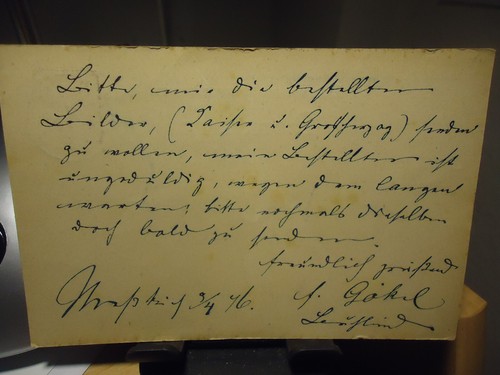 Bitte, mir die bestellten
Bilder, (Kaiser u. Großherzog) senden
zu wollen, mein Besteller ist
ungeduldig, wegen dem langen
warten; bitte nochmals dieselben
doch bald zu senden.
freundlich grüßend
f. Gökel
Meßkirch 3/4 96.